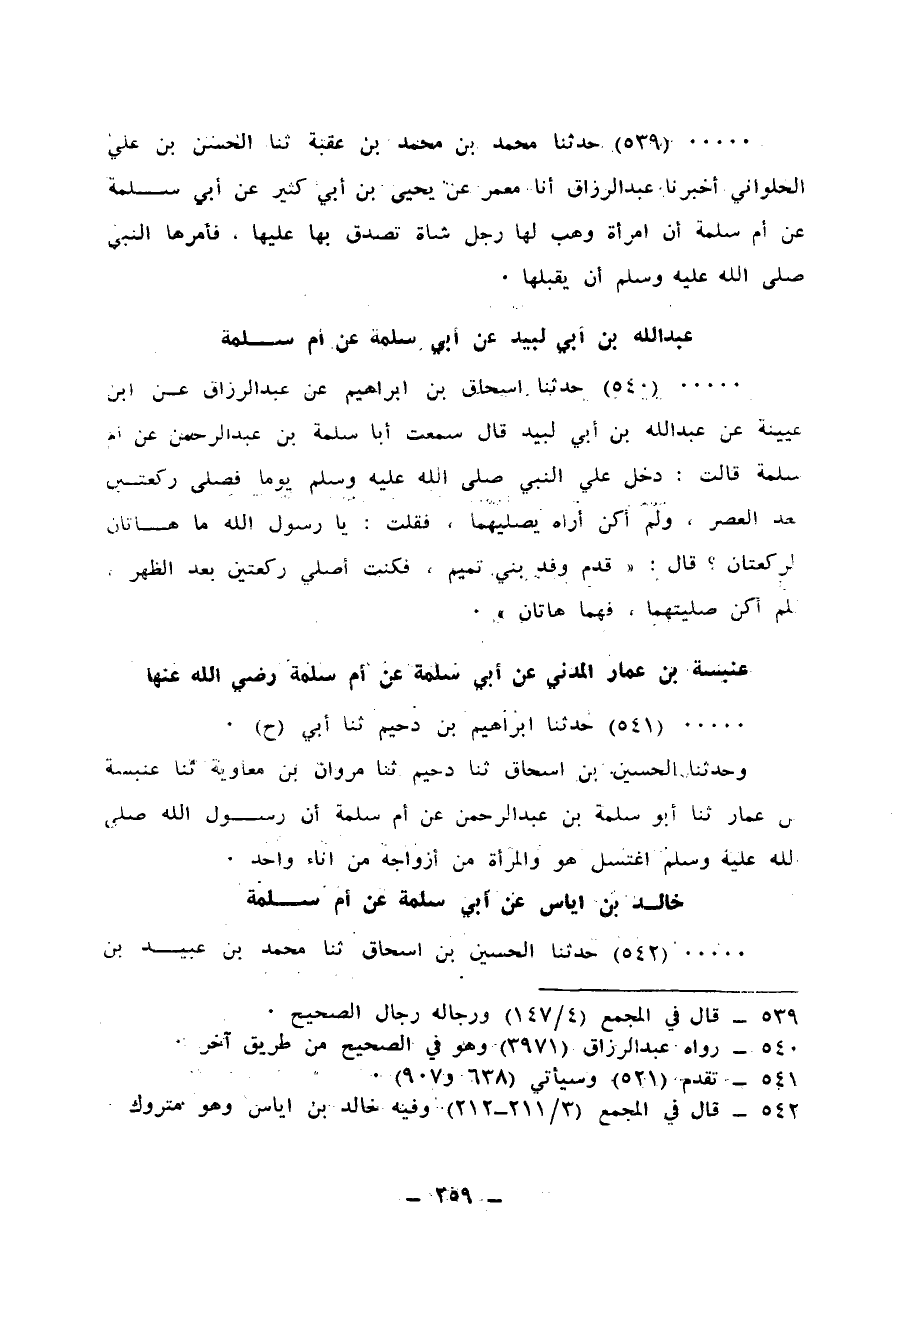 ٠٠٠٠٠ (٥٣٩) حدثنا محمد بن محمد بن عقبة ثنا الحسن بن علي
الحلواني أخبرنا عبدالرزاق أنا معمر عن يحيى بن أبي كثير عن أبي ســـلمة
عن أم سلمة أن امرأة وهب لها رجل شاة تصدق بها عليها ، فأمرها النبي
صلى الله عليه وسلم أن يقبلها ٠
عبدالله بن أبي لبيد عن أبي سلمة عن أم ســـلمة
٠٠٠٠٠ (٥٤٠) حدثنا اسحاق بن ابراهيم عن عبدالرزاق عـن ابن
عيينة عن عبدالله بن أبي لبيد قال سمعت أبا سلمة بن عبدالرحمن عن أم
سلمة قالت : دخل علي النبي صلى الله عليه وسلم يوما فصلى ركعتـين
عد العصر ، ولم أكن أراه يصليهما ، فقلت : يا رسول الله ما هـــاتان
لركعتان ؟ قال : « قدم وفد بني تميم ، فكنت أصلي ركعتين بعد الظهر ،
لم أكن صليتهما ، فهما هاتان » ٠
عنبسة بن عمار المدني عن أبي سلمة عن أم سلمة رضي الله عنها
٠٠٠٠٠ (٥٤١) حدثنا ابراهيم بن دحيم ثنا أبي (ح) ٠
وحدثنا الحسين بن اسحاق ثنا دحيم ثنا مروان بن معاوية ثنا عنبسة
ن عمار ثنا أبو سلمة بن عبدالرحمن عن أم سلمة أن رســـول الله صلى
لله علية وسلم اغتسل هو والمرأة من أزواجه من اناء واحد ٠
خالـد بن اياس عن أبي سلمة عن أم ســـلمة
٠٠٠٠٠ (٥٤٢) حدثنا الحسين بن اسحاق ثنا محمد بن عبيـــد بن
٥٣٩ ــ قال في المجمع (١٤٧/٤) ورجاله رجال الصحيح ٠
٥٤٠ ــ رواه عبدالرزاق (٣٩٧١) وهو في الصحيح من طريق آخر ٠
٥٤١ ــ تقدم (٥٢١) وسيأتي (٦٣٨ و٩٠٧) ٠
٥٤٢ ــ قال في المجمع (٢١١/٣ــ٢١٢) وفيه خالد بن اياس وهو متروك
ــ ٢٥٩ ــ